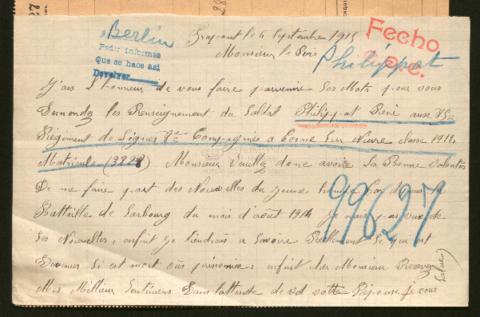 Berlin
Pedir informes
Que se hace así
Devolver
le 4 Septembre 1915
Monsieur le
Fecho
P.C.
Philippat
J'ais l'honneur de vous faire parvenir ses Mots pour vous
Demander les Renseignement du Soldat Philippat René
Régiment de Ligne Compagnie a Cosne Sur Nievre Classe 1911
Matricule (3828) Monsieur Veuillez donc avoir La Bonne Volonté
De me faire part des Nouvelles du jeune
Battaille de Sarbourg du mois d'août 1914 je
Ses Nouvelles, enfin je tiendrais a Savoire
Devenus Si est mort ou prisonnier; enfin Monsieur Recevez
Mes Meilleur Sentiments Dans l'attente de votre Réponse je vous
Salue
99627